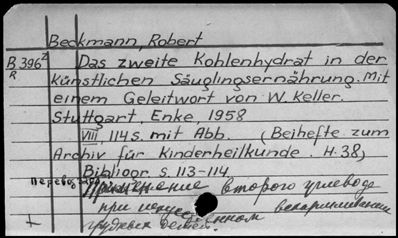 Beckmann, Robert
B 396² Das zweite Kohlenhydrat in der
R künstlichen Säuglingsernährung. Mit
einem Geleitwort von W. Keller.
Stuttgart, Enke, 1958
VIII, 114 S. mit Abb. (Beihefte zum
Archiv für Kinderheilkunde. H. 38)
Bibliogr. S. 113-114
Перевод загл.: Применение второго углевода
при искусственном вскармливании
грудных детей.